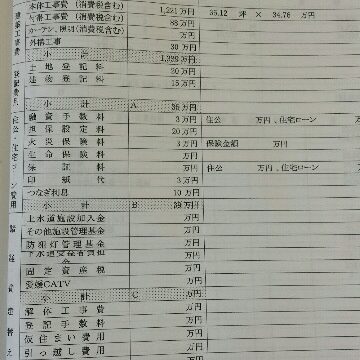 本体工事費（消費税含む） 1,221 万円 35.12 坪 × 34.76 万円
付帯工事費（消費税含む） 万円
カーテン、照明（消費税含む） 88 万円
外構工事 30 万円
小計 万円
土地登記料 20 万円
建設登記料 15 万円
小計 A 35 万円
融資手数料 3 万円 住公 万円、住宅ローン
担保設定料 20 万円
火災保険料 3 万円 保険金額 万円
生命保険料 万円
保証料 万円 住公 万円、住宅ローン
印紙代 3 万円
つなぎ利息 10 万円
小計 B 39 万円
上水道施設加入金 万円
その他施設管理基金 万円
防犯灯管理基金 万円
下水道受益者負担金 万円
固定資産税 万円
愛媛CATV 万円
小計 C 万円
解体工事費 万円
登記手数料 万円
仮住まい費用 万円
引っ越し費用 万円